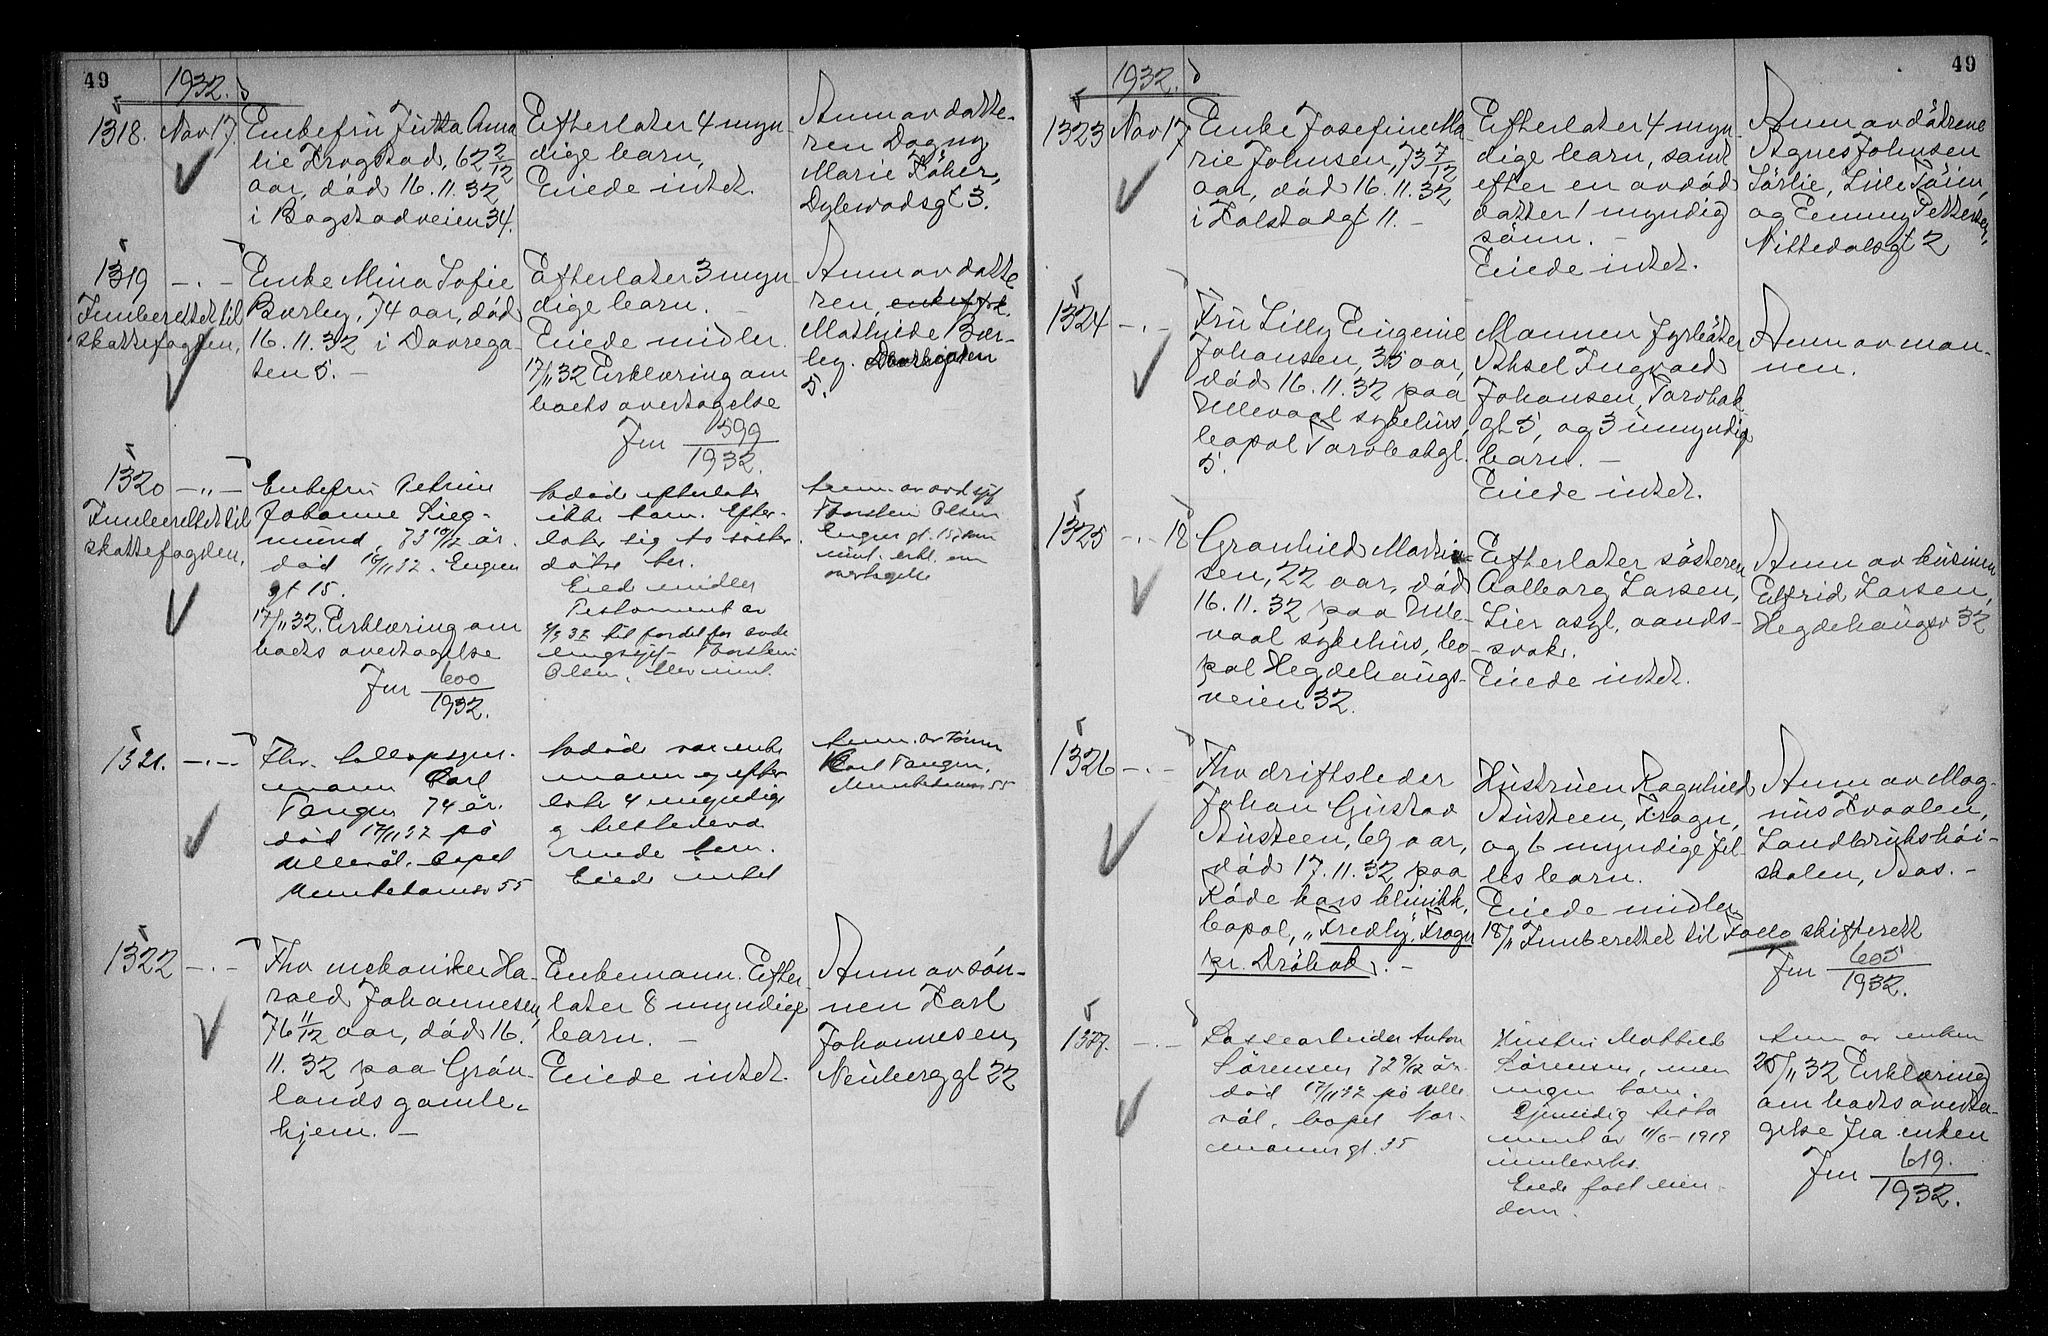 49
1932.
1318. Nov 17. Enkefru Jutta Ama-
lie Krogstad, 62 2/12
aar, död 16.11.32
i Bogstadveien 34.
Efterlater 4 myn-
dige barn,
Eiede intet.
Anm av datte-
ren Dagny
Marie Köher,
Dybwadsgt 3.
1319 -.- Enke Mina Sofie
Bærby, 74 aar, död
16.11.32 i Dovrega-
ten 5. -
Innberettet til
skattefogden,
Efterlater 3 myn
dige barn. -
Eiede midler.
17/11 32 Erklæring om
boets overtagelse
Jnr 599/1932.
Anm av datte
ren, enkefrk.
Mathilde Bær-
by. Dovregaten
5.
1320 -"- Enkefru Petrine
Johanne Sieg-
mund, 73 10/12 år.
död 16/11 32. Engen
gt 15.
17/11 32. Erklæring om
boets overtagelse
Jnr 600/1932.
Innberettet til
skattefogden,
Avdöde efterlater
ikke barn. Efter-
later sig to söster
dötre
Eiede midler
Testament av
til fordel for svoge
Thorstein
Olsen.
Anm. av
Thorstein Olsen
Engens gt. 15,
erkl. om
overtagelse
1321. -.- Fhv.
mann Carl
Tangen 74 år.
död 17/11 32 på
Ullevål. bopel
Munkedamsv 55
Avdöde var enke
mann og efter
later 4 myndige
og tilstedevæ
rende barn.
Eiede intet
Anm. av sönn
Karl Tangen,
Munkedamsv 55
1322 -.- Fhv mekaniker Ha-
rald Johannesen,
76 11/12 aar, död 16.
11.32 paa Grön-
lands gamle-
hjem. -
Enkemann. Efter
later 8 myndige
barn. -
Eiede intet.
Anm av sön-
nen Karl
Johannesen,
Neuberggt 22
49
1932.
1323 Nov 17. Enke Josefine Ma
rie Johnsen, 73 7/12
aar, död 16.11.32
i Falstadgt 11. -
Efterlater 4 myn-
dige barn, samt
efter en avdöd
datter 1 myndig
sönn. -
Eiede intet.
Anm av dötrene
Agnes Johnsen
Sörlie, Lilli
og Emmy Pettersen,
Nittedalsgt 2
1324 -.- Fru Lilly Eugenie
Johansen, 35 aar,
död 16.11.32 paa
Ullevaal sykehus,
bopæl Torvbakgt.
5.
Mannen fyrböter
Aksel Ingvald
Johansen, Torvbak
gt 5, og 3 umyndige
barn. -
Eiede intet.
Anm av man-
nen.
1325 -.- 18 Granhild Martin-
sen, 22 aar, död
16.11.32 paa Ulle-
vaal sykehus, bo-
pæl Hegdehaugs-
veien 32.
Efterlater södsteren
Aalborg Larsen,
Lier asyl, aands-
svak.
Eiede intet.
Anm av kusinen
Elfrid Larsen,
Hegdehaugsv 32
1326 -.- Fhv driftsleder
Johan Gustav
Austeen, 69 aar,
död 17.11.32 paa
Röde kors klinikk,
bopæl, "Fredly", Frogn
pr. Dröbak. -
Hustruen Ragnhild
Austeen, Frogn,
og 6 myndige fel-
les barn.
Eiede midler.
18/11 Innberettet til Follo skifterett
Jnr 605/1932.
Anm av Mag-
nus Kvaalen,
Landbrukshöi-
skolen, Aas. -
1327. -.- Lossearbeider Anton
Sörensen 72 9/12 år
död 17/11 32 på Ulle
vål, bopel Nor-
manns gt. 35
Hustru Mathilde
Sörensen, men
ingen barn.
Gjensidig testa
ment av 11/6-1919
Eiede fast eien
dom.
Anm av enken
25/11 32 Erklæring
om boets överta-
gelse fra enken
Jnr 619./1932.